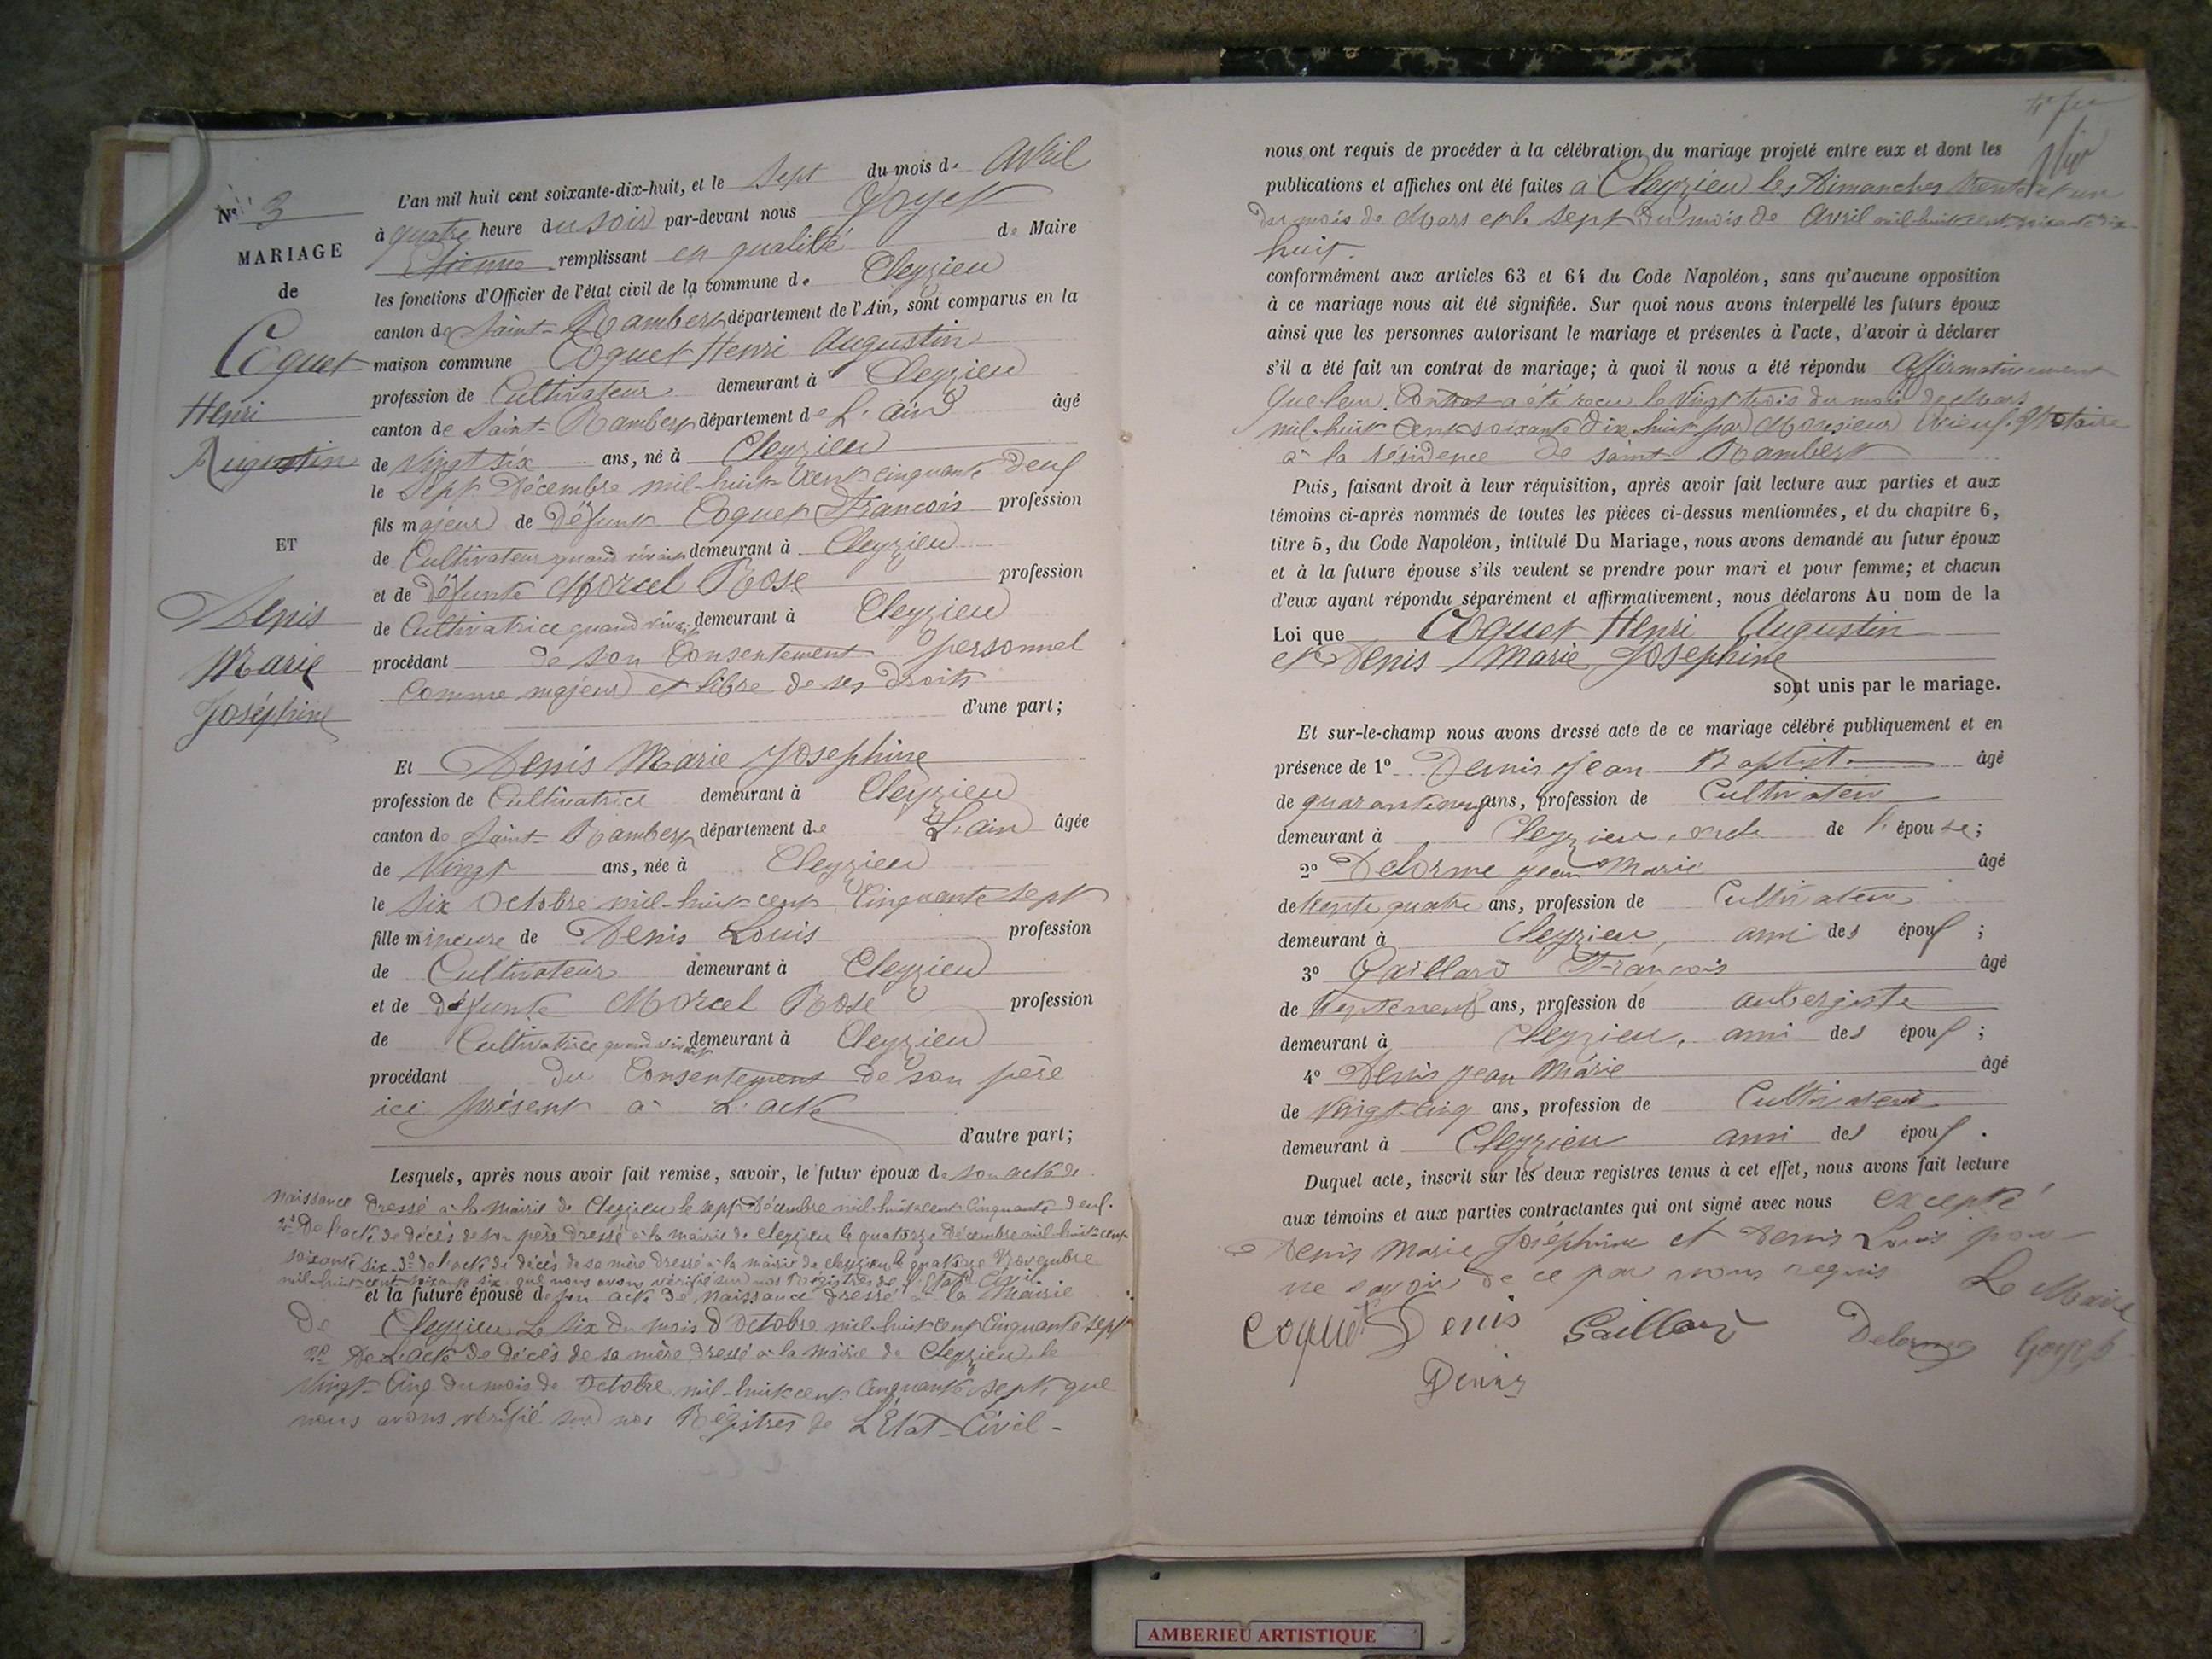 N° 3
MARIAGE
de
Coquet
Henri
Augustin
ET
Denis
Marie
Joséphine
L'an mil huit cent soixante-dix-huit, et le Sept du mois de Avril
à quatre heure du soir par-devant nous Goyet
Etienne remplissant en qualité de Maire
les fonctions d'Officier de l'état civil de la commune de Cleyzieu
canton de Saint-Rambert département de l'Ain, sont comparus en la
maison commune Coquet Henri Augustin
profession de Cultivateur demeurant à Cleyzieu
canton de Saint-Rambert département de L'ain âgé
de Vingt six ans, né à Cleyzieu
le Sept Décembre mil-huit-cent-cinquante deux
fils majeur de Défunt Coquet Francois profession
de Cultivateur quand vivait demeurant à Cleyzieu
et de Défunte Morcel Rose profession
de Cultivatrice quand vivait demeurant à Cleyzieu
procédant de son Consentement personnel
Comme majeur et libre de ses Droits
d'une part;
Et Denis Marie Josephine
profession de Cultivatrice demeurant à Cleyzieu
canton de Saint-Rambert département de L'ain âgée
de Vingt ans, née à Cleyzieu
le Six Octobre mil-huit-cent Cinquante sept
fille mineure de Denis Louis profession
de Cultivateur demeurant à Cleyzieu
et de défunte Morcel Rose profession
de Cultivatrice quand vivait demeurant à Cleyzieu
procédant du Consentement de son père
ici présent à L'acte
d'autre part;
Lesquels, après nous avoir fait remise, savoir, le futur époux de son acte de
naissance Dressé à la Mairie de Cleyzieu le sept Décembre mil-huit-cent Cinquante deux.
2° De l'acte de décès de son père Dressé à la mairie de cleyzieu le quatorze Décembre mil-huit-cent
soixante six 3° de l'acte de décès de sa mère Dressé à la mairie de cleyzieu le quatorze Novembre
mil-huit-cent-soixante six que nous avons vérifié sur nos Registres de l'Etat Civil
et la future épouse de son acte de Naissance dressé à la Mairie
De Cleyzieu Le Six du mois d'Octobre mil-huit-cent Cinquante sept
2° De L'acte de décès de sa mère Dressé à la Mairie de Cleyzieu le
Vingt-Cinq du mois de Octobre mil-huit-cent Cinquante sept que
nous avons vérifié sur nos Registres de L'Etat-Civil-
nous ont requis de procéder à la célébration du mariage projeté entre eux et dont les
publications et affiches ont été faites à Cleyzieu les Dimanches trente et un
du mois de Mars et le Sept du mois de Avril mil-huit-cent-soixante dix-
huit.
conformément aux articles 63 et 64 du Code Napoléon, sans qu'aucune opposition
à ce mariage nous ait été signifiée. Sur quoi nous avons interpellé les futurs époux
ainsi que les personnes autorisant le mariage et présentes à l'acte, d'avoir à déclarer
s'il a été fait un contrat de mariage; à quoi il nous a été répondu Affirmativement
Que leur Contrat a été reçu le Vingt trois du mois de Mars
mil-huit Cent soixante Dix-huit par Monsieur Notaire
à la résidence de Saint-Rambert
Puis, faisant droit à leur réquisition, après avoir fait lecture aux parties et aux
témoins ci-après nommés de toutes les pièces ci-dessus mentionnées, et du chapitre 6,
titre 5, du Code Napoléon, intitulé Du Mariage, nous avons demandé au futur époux
et à la future épouse s'ils veulent se prendre pour mari et pour femme; et chacun
d'eux ayant répondu séparément et affirmativement, nous déclarons Au nom de la
Loi que Coquet Henri Augustin
et Denis Marie Josephine
sont unis par le mariage.
Et sur-le-champ nous avons dressé acte de ce mariage célébré publiquement et en
présence de 1° Denis Jean Baptiste âgé
de quarante neuf ans, profession de Cultivateur
demeurant à Cleyzieu, oncle de l'épouse;
2° Delorme Jean Marie âgé
de trente quatre ans, profession de Cultivateur
demeurant à Cleyzieu, ami des époux;
3° Gaillard François âgé
de trente neuf ans, profession de aubergiste
demeurant à Cleyzieu, ami des époux;
4° Denis Jean Marie âgé
de Vingt-Cinq ans, profession de Cultivateur
demeurant à Cleyzieu ami des époux.
Duquel acte, inscrit sur les deux registres tenus à cet effet, nous avons fait lecture
aux témoins et aux parties contractantes qui ont signé avec nous excepté
Denis Marie Joséphine et Denis Louis pour
ne savoir de ce par nous requis Le Maire
Coquet Denis Gaillard Delorme Goyet
Denis
AMBERIEU ARTISTIQUE